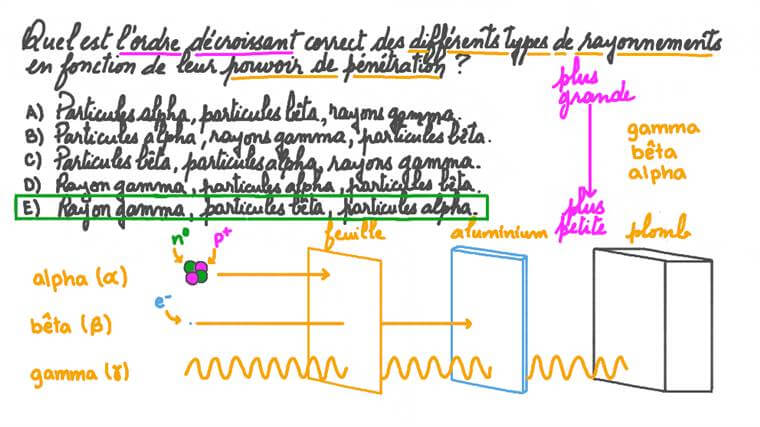 Quel est l'ordre décroissant correct des différents types de rayonnements
en fonction de leur pouvoir de pénétration ?
A) Particules alpha, particules bêta, rayons gamma.
B) Particules alpha, rayons gamma, particules bêta.
C) Particules bêta, particules alpha, rayons gamma.
D) Rayon gamma, particules alpha, particules bêta.
E) Rayon gamma, particules bêta, particules alpha.
plus
grande
plus
petite
gamma
bêta
alpha
feuille
aluminium
plomb
n⁰
p⁺
alpha (α)
e⁻
bêta (β)
gamma (γ)